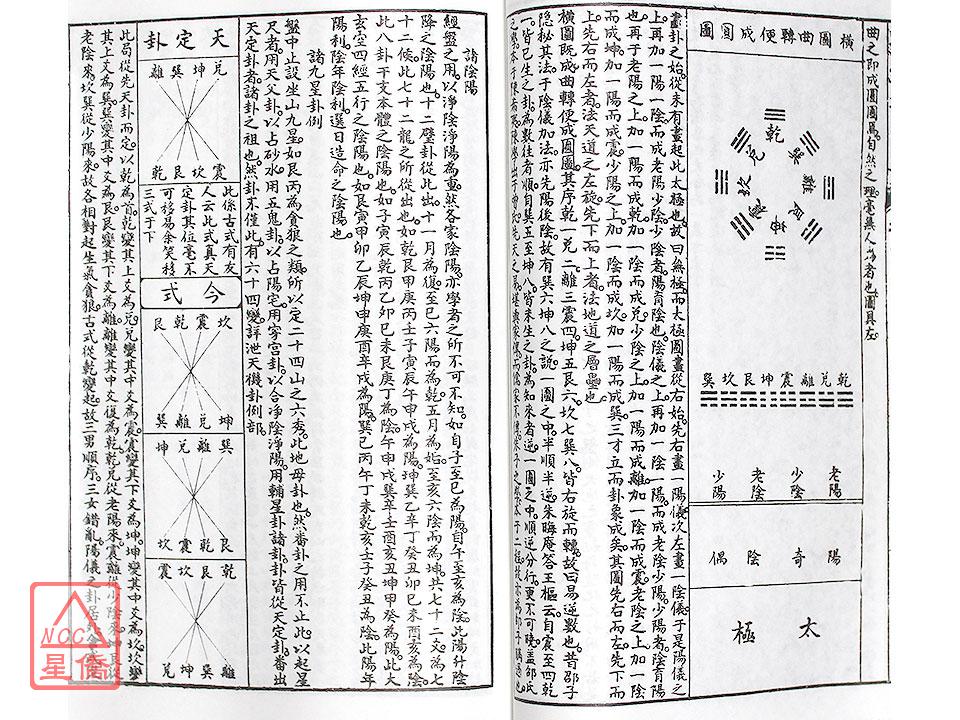 曲之即成圓圖焉自然之理毫無人為者也圖具左
橫圖曲轉便成圓圖
乾
兌
離
震
巽
坎
艮
坤
乾兌離震坤艮坎巽
老陽
少陰
老陰
少陽
陽奇
陰偶
太極
畫卦之始從未有畫起此太極也故曰無極而太極圖畫從右始先右畫一陽儀次左畫一陰儀于是陽儀之
上再加一陽一陰而成老陽少陰少陰者陽育陰也陰儀之上再加一陰一陽而成老陰少陽少陽者陰育陽
也再于老陽之上加一陽而成乾加一陰而成兌少陰之上加一陽而成離加一陰而成震老陰之上加一陰
而成坤加一陽而成艮少陽之上加一陰而成坎加一陽而成巽三才立而卦象成矣其圓圖先右而左先下而
上先右而左者法天道之左旋先下而上者法地道之層疊也
橫圖既成曲轉便成圓圖其序乾一兌二離三震四坤五艮六坎七巽八皆右旋而轉故曰易逆數也昔邵子
隱秘其法于陰儀加法亦先陽後陰故有巽六坤八之說一圖之中半順半逆朱晦庵答王樞云自震至四乾
一皆已生之卦為數往者順自巽五至坤八皆未生之卦為知來者逆一圖之中順逆分行更不可曉蓋邵氏
諸陰陽
經盤之用以淨陰淨陽為重然各家陰陽亦學者之所不可不知如自子至巳為陽自午至亥為陰此陽升陰
降之陰陽也十二璧卦從此出十一月為復至巳六陽而為乾五月為姤至亥六陰而為坤共七十二爻為七
十二候此七十二龍之所從出也如乾艮甲庚丙壬子寅辰午申戌為陽坤巽乙辛丁癸丑卯巳未酉亥為陰
此八卦干支本體之陰陽也如子寅辰乾丙乙卯巳未艮庚丁為陰午申戌巽辛壬酉亥丑坤甲癸為陽此大
玄空四經五行之陰陽也如艮寅甲卯乙辰坤申庚酉辛戌為陽巽巳丙午丁未乾亥壬子癸丑為陰此陽年
陽利陰年陰利選日造命之陰陽也
諸九星卦例
盤中止設坐山九星如艮丙為貪狼之類所以定二十四山之六秀此地母卦也然番卦之用不止此以起星
尺者用天父卦以占砂水用五鬼卦以占陽宅用穿宮卦以合淨陰淨陽用輔星卦諸卦皆從天定卦番出
天定卦者諸卦之祖也然卦不僅此有六十四變詳泄天機卦例部
天定卦
兌坤巽離
震坎艮乾
此係古式有友
人云此式真天
定卦其位毫不
可移易余笑移
三式于下
今式
坎震乾艮
坤兌離巽
巽離兌坤
艮乾震坎
乾艮坎震
離巽坤兌
此局從先天卦而定以乾為首乾變其上爻為兌兌變其中爻為震震變其下爻為坤坤變其中爻為坎坎變
其上爻為巽巽變其中爻為艮艮變其下爻為離離變其中爻復為乾乾兌從老陽來震離從少陰來坤艮從
老陰來坎巽從少陽來故各相對起生氣貪狼古式從乾變起故三男順序三女錯亂陽儀之卦居
NCC
星僑